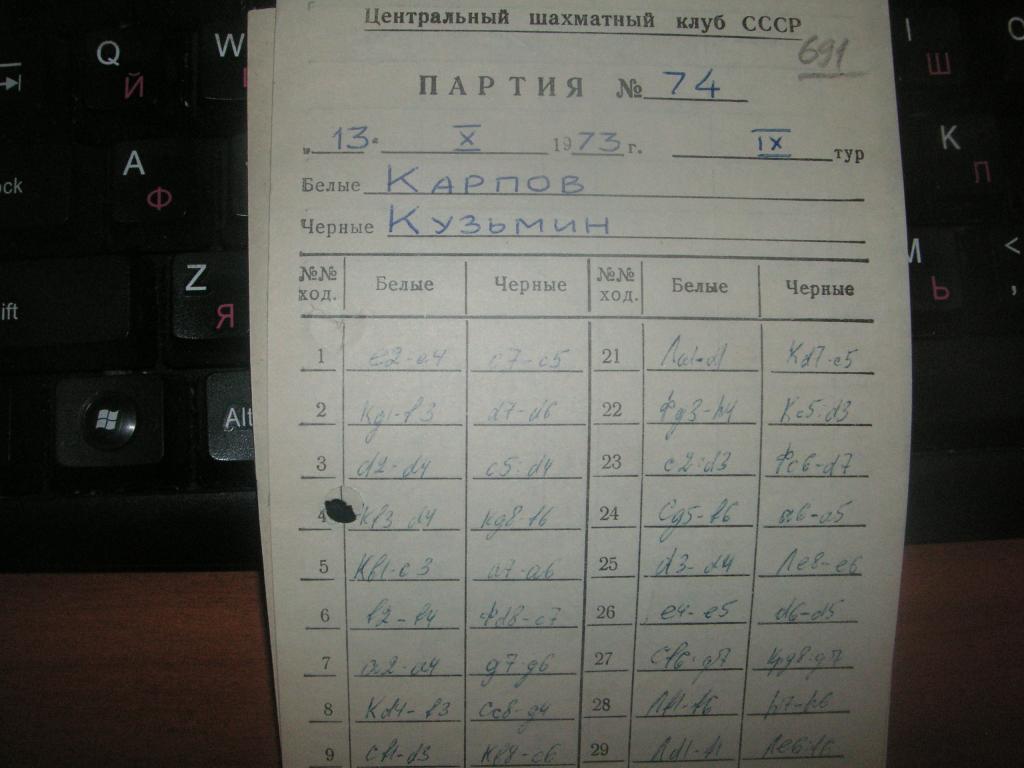 Центральный шахматный клуб СССР
691
ПАРТИЯ № 74
„ 13 " X 1973 г. IX тур
Белые Карпов
Черные Кузьмин
№№ ход. Белые Черные №№ ход. Белые Черные
1 e2-e4 c7-c5 21 Лa1-d1 Кd7-c5
2 Кg1-f3 d7-d6 22 Фg3-h4 Кc5:d3
3 d2-d4 c5:d4 23 c2:d3 Фc6-d7
4 Кf3 d4 Кg8-f6 24 Сg5-f6 a6-a5
5 Кb1-c3 a7-a6 25 d3-d4 Лe8-e6
6 f2-f4 Фd8-c7 26 e4-e5 d6-d5
7 a2-a4 g7 g6 27 Сf6:g7 Крg8:g7
8 Кd4-f3 Сc8-g4 28 Лf1-f6 h7-h6
9 Сf1-d3 Кb8-c6 29 Лd1-f1 Лe6:f6
Q Й
W
A Ф
Z Я
Alt
ock
ift
Ш
K Л
M Ь
<
,